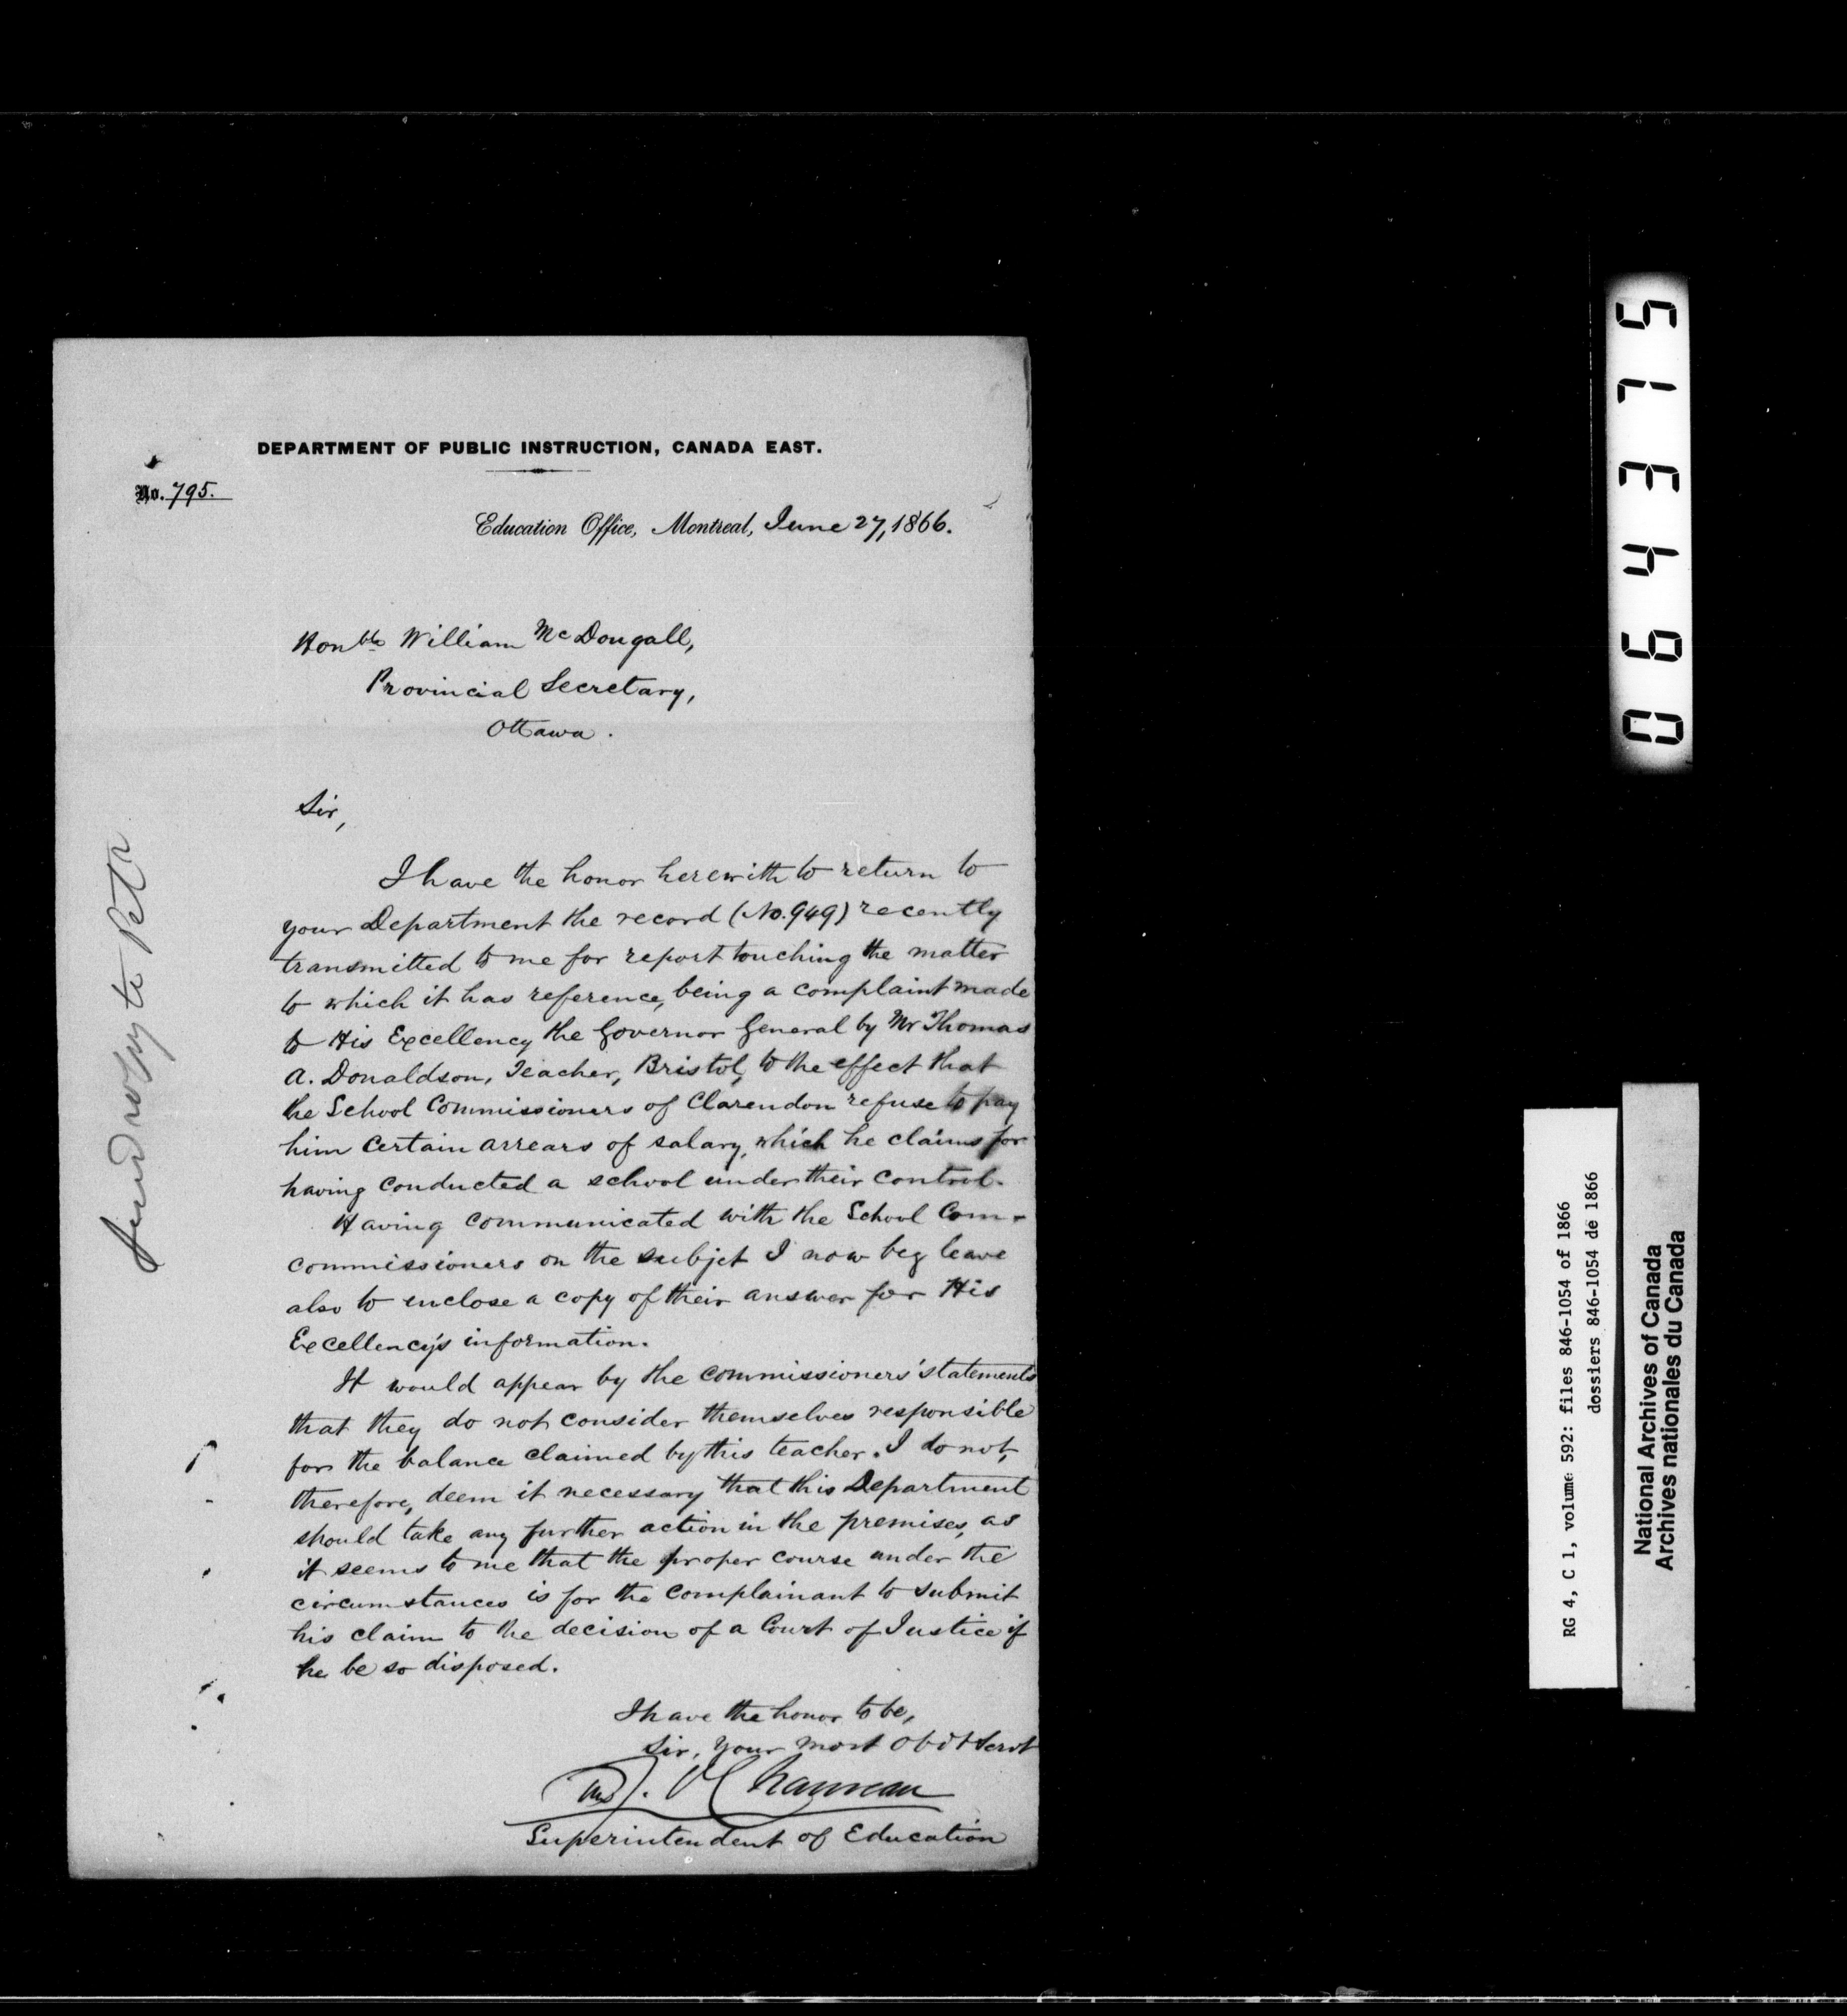 DEPARTMENT OF PUBLIC INSTRUCTION, CANADA EAST.
No. 795.
Education Office, Montreal, June 27, 1866.
Honble William McDougall,
Provincial Secretary,
Ottawa.
Sir,
I have the honor herewith to return to
your Department the record (No. 949) recently
transmitted to me for report touching the matter
to which it has reference, being a complaint made
to His Excellency the Governor General by Mr Thomas
A. Donaldson, Teacher, Bristol, to the effect that
the School Commissioners of Clarendon refuse to pay
him certain arrears of salary, which he claims for
having conducted a school under their control.
Having communicated with the School Com-
commissioners on the subjet I now beg leave
also to enclose a copy of their answer for His
Excellency's information.
It would appear by the commissioners' statements
that they do not consider themselves responsible
for the balance claimed by this teacher. I do not,
therefore, deem it necessary that this Department
should take any further action in the premises, as
it seems to me that the proper course under the
circumstances is for the complainant to submit
his claim to the decision of a Court of Justice if
he be so disposed.
I have the honor to be,
Sir, your most Obdt Servt
Chauveau
Superintendent of Education
to
069435
RG 4, C 1, volume 592: files 846-1054 of 1866
dossiers 846-1054 de 1866
National Archives of Canada
Archives nationales du Canada